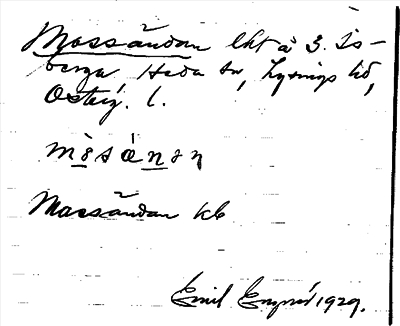 Mossändan lht å S. Is-
berga Heda sn, Lysings hd,
Österg. l.
mòsánən
Massändan kb
Emil 1929.